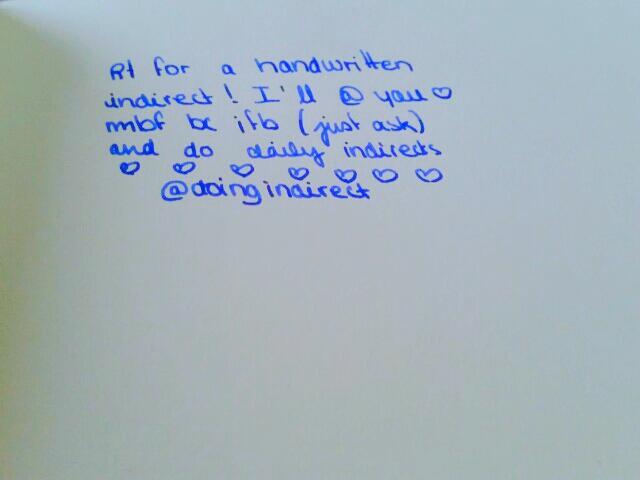 Rt for a handwritten
indirect! I'll @ you♡
mbf bc ifb (just ask)
and do daily indirects
♡ ♡ ♡ ♡ ♡ ♡ ♡
@doingindirect